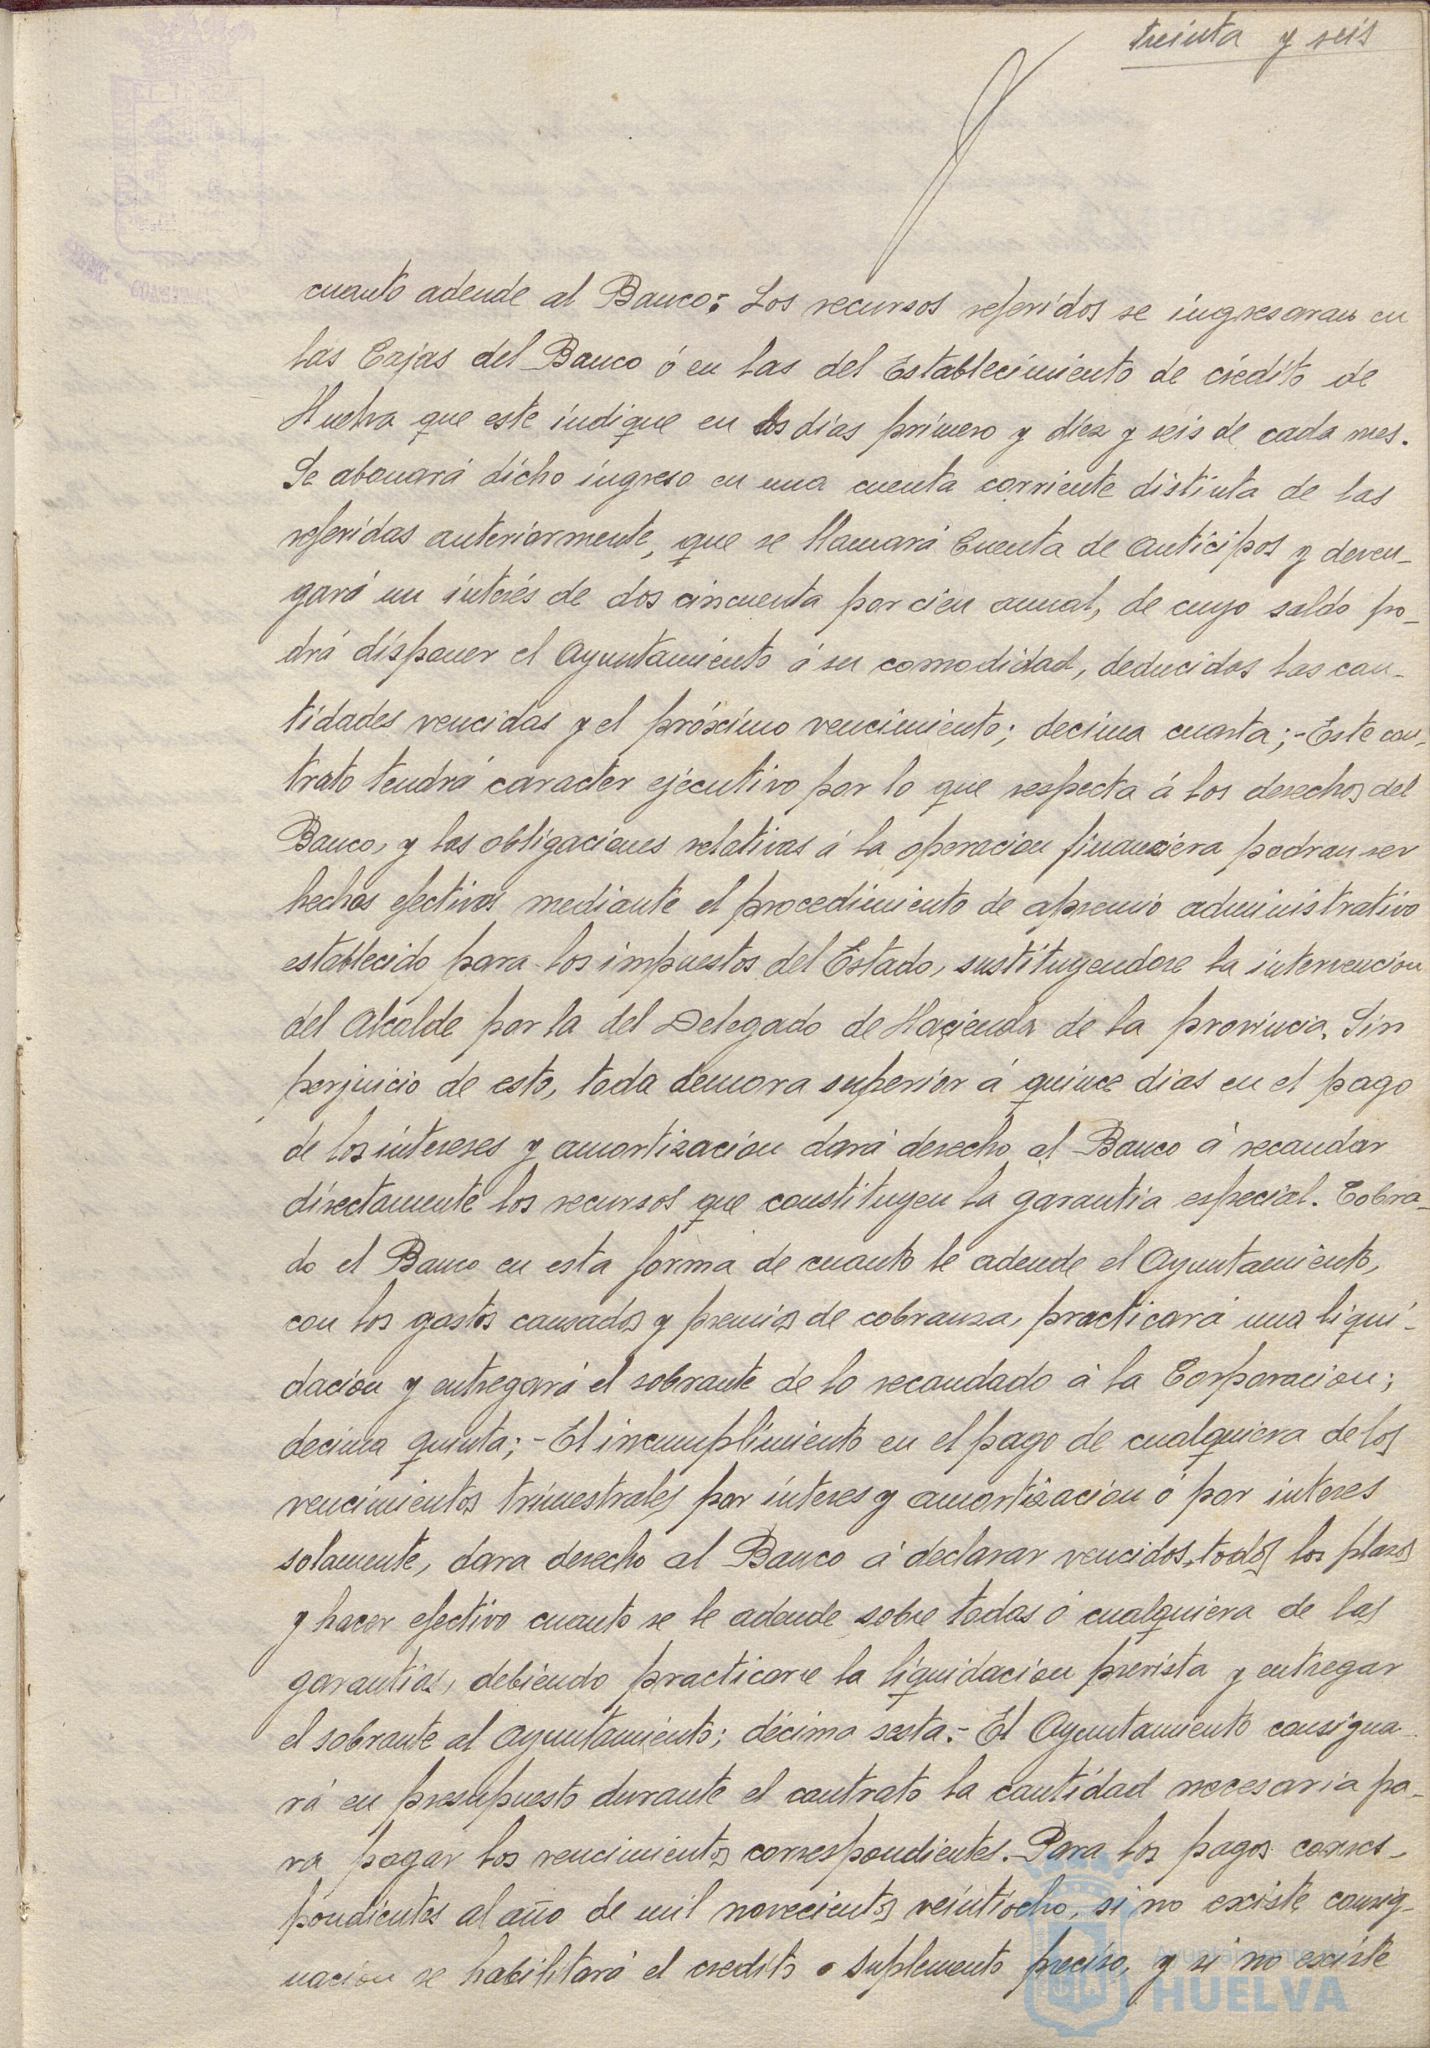 treinta y seis
cuanto adeude al Banco: Los recursos referidos se ingresaran en
las Cajas del Banco ó en las del Establecimiento de crédito de
Huelva que este indique en los dias primero y diez y seis de cada mes.
Se abonará dicho ingreso en una cuenta corriente distinta de las
referidas anteriormente, que se llamará Cuenta de Anticipos y deven-
gará un interés de dos cincuenta por cien anual, de cuyo saldo po-
drá disponer el Ayuntamiento á su comodidad, deducidas las can-
tidades vencidas y el próximo vencimiento; decima cuarta;-Este con-
trato tendrá caracter ejecutivo por lo que respecta á los derechos del
Banco, y las obligaciones relativas á la operacion financiera podran ser
hechas efectivas mediante el procedimiento de apremio administrativo
establecido para los impuestos del Estado, sustituyendose la intervencion
del Alcalde por la del Delegado de Hacienda de la provincia. Sin
perjuicio de esto, toda demora superior á quince dias en el pago
de los intereses y amortizacion dará derecho al Banco á recaudar
directamente los recursos que constituyen la garantia especial. Cobra-
do el Banco en esta forma de cuanto le adeude el Ayuntamiento,
con los gastos causados y premios de cobranza, practicará una liqui-
dacion y entregará el sobrante de lo recaudado á la Corporacion;
decima quinta;-El incumplimiento en el pago de cualquiera de los
vencimientos trimestrales por interes y amortizacion ó por interes
solamente, dara derecho al Banco á declarar vencidos todos los plazos
y hacer efectivo cuanto se le adeude sobre todas ó cualquiera de las
garantias, debiendo practicarse la liquidacion prevista y entregar
el sobrante al Ayuntamiento; décima sexta.- El Ayuntamiento consigna-
rá en presupuesto durante el contrato la cantidad necesaria pa-
ra pagar los vencimientos correspondientes. Para los pagos corres-
pondientes al año de mil novecientos veintiocho, si no existe consig-
nacion se habilitará el credito o suplemento preciso, y si no existe
Ayuntamiento de
HUELVA